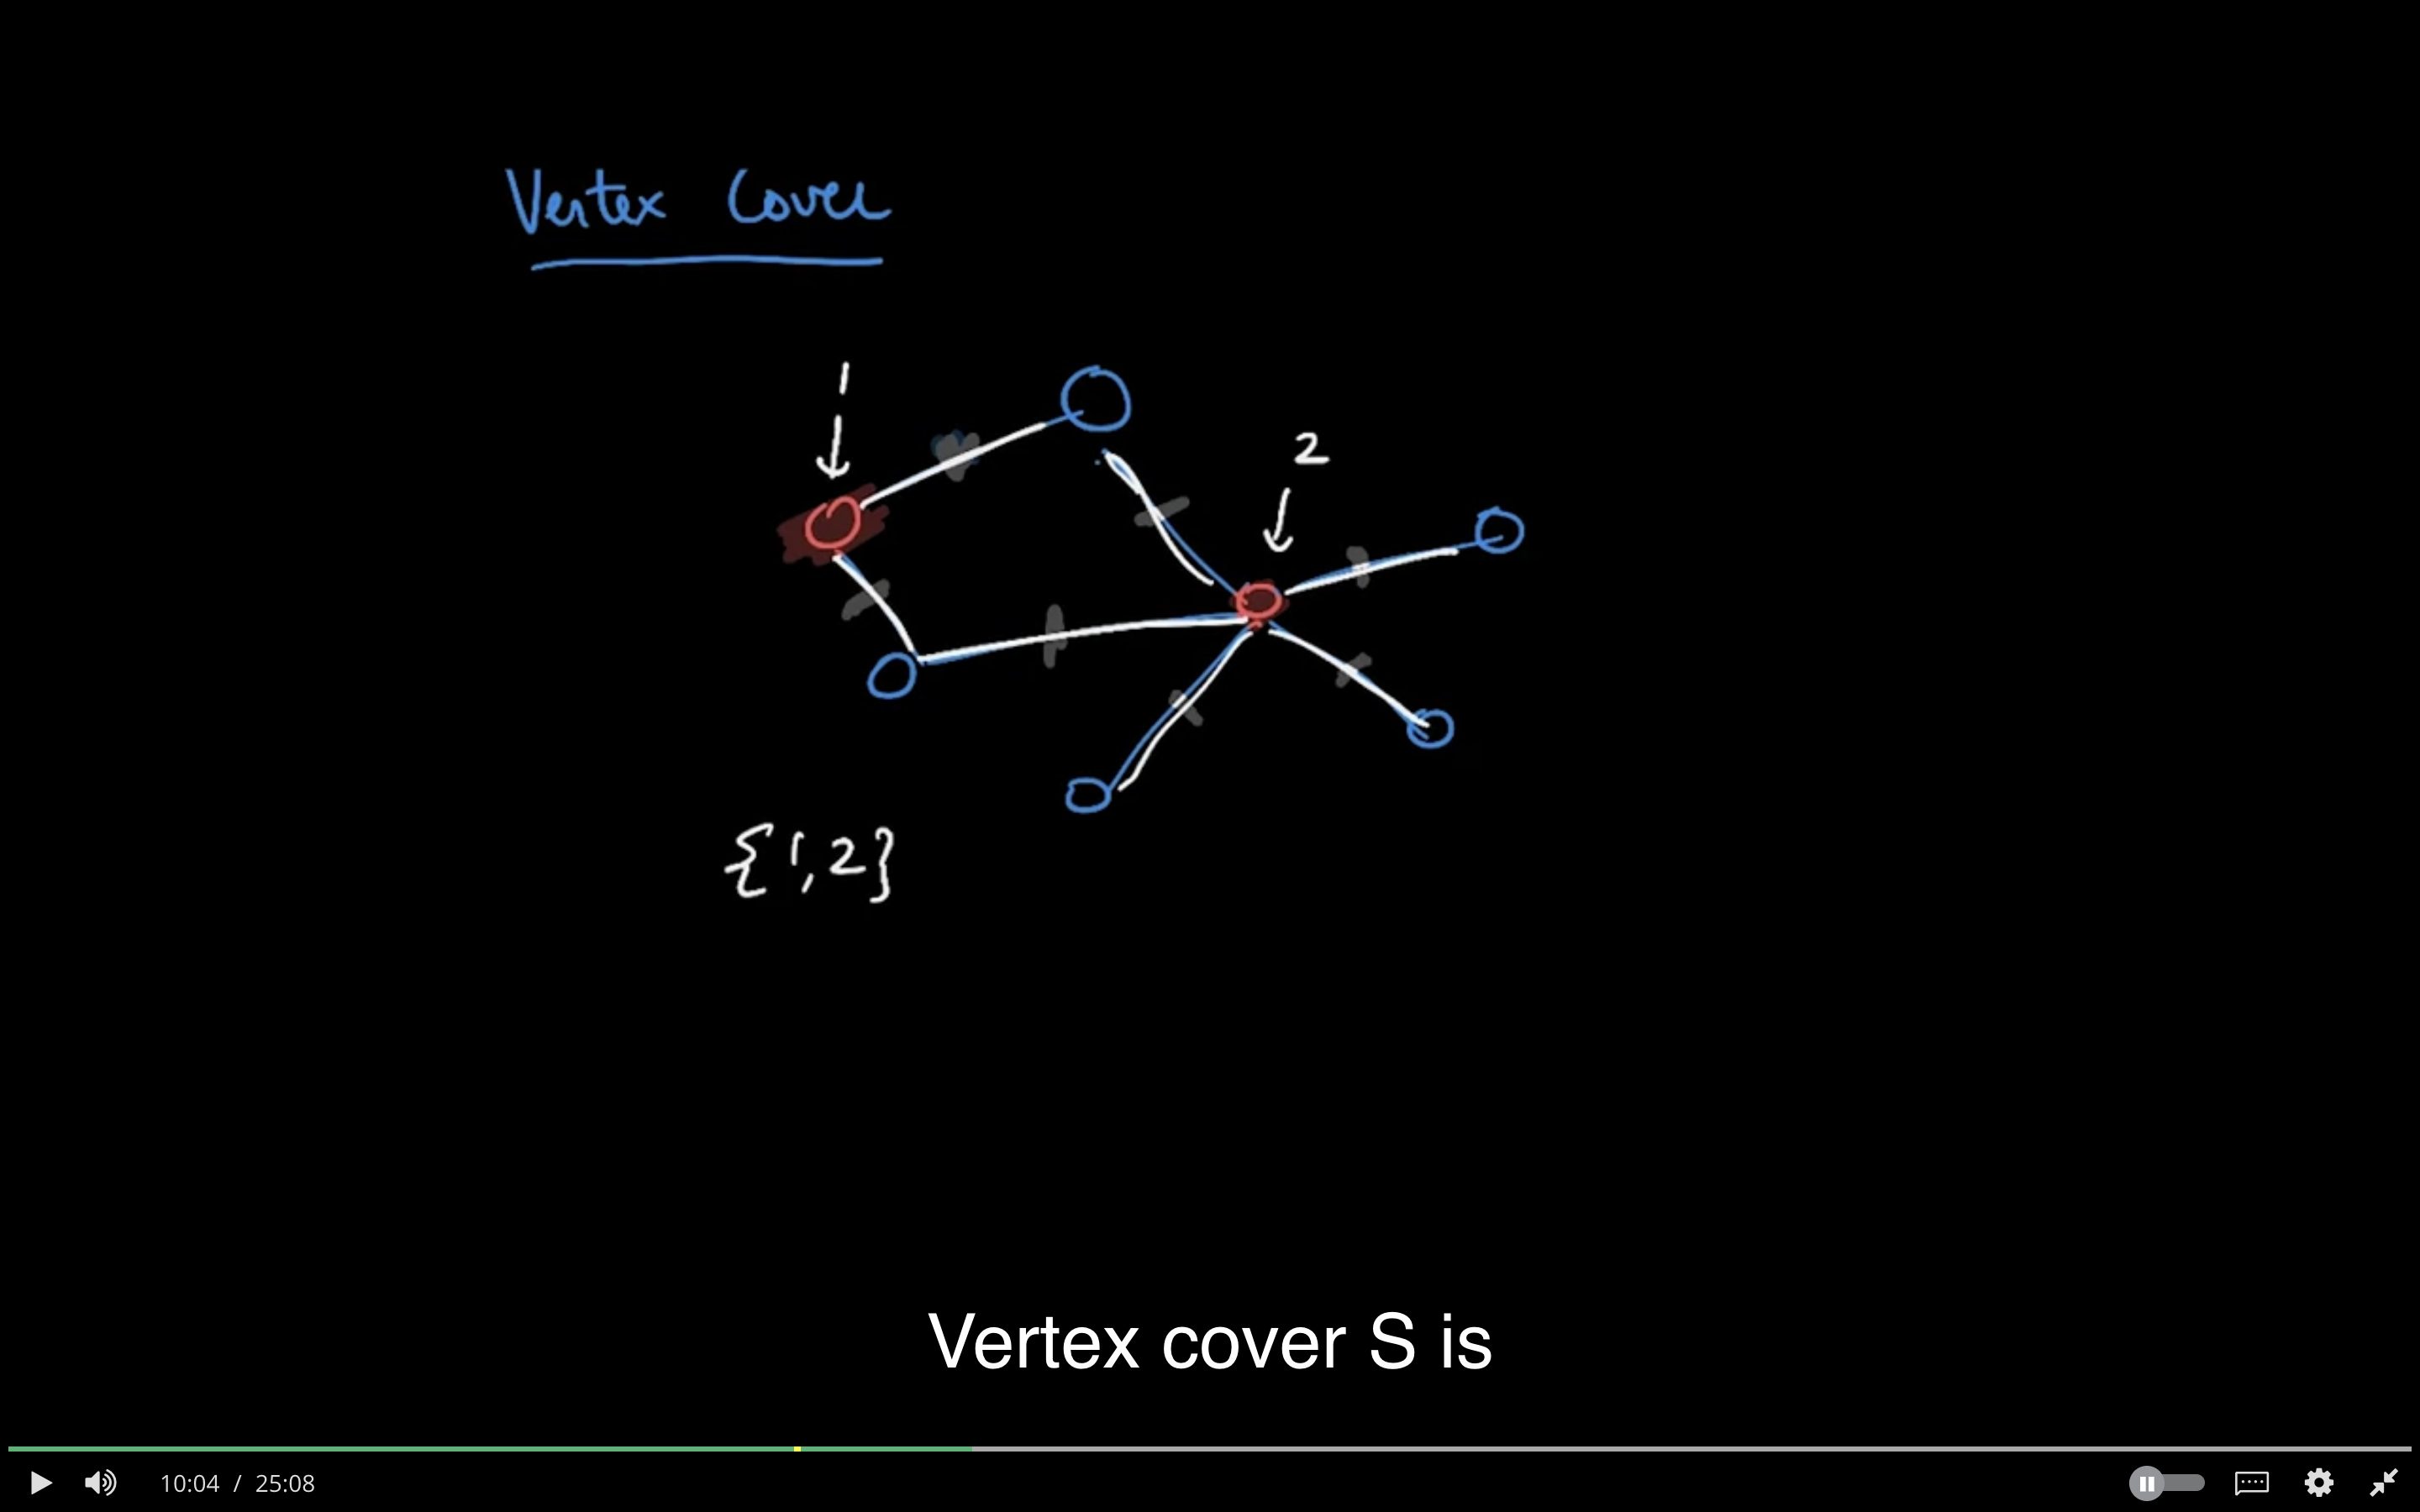 Vertex Cover
1
2
{1,2}
Vertex cover S is
10:04 / 25:08